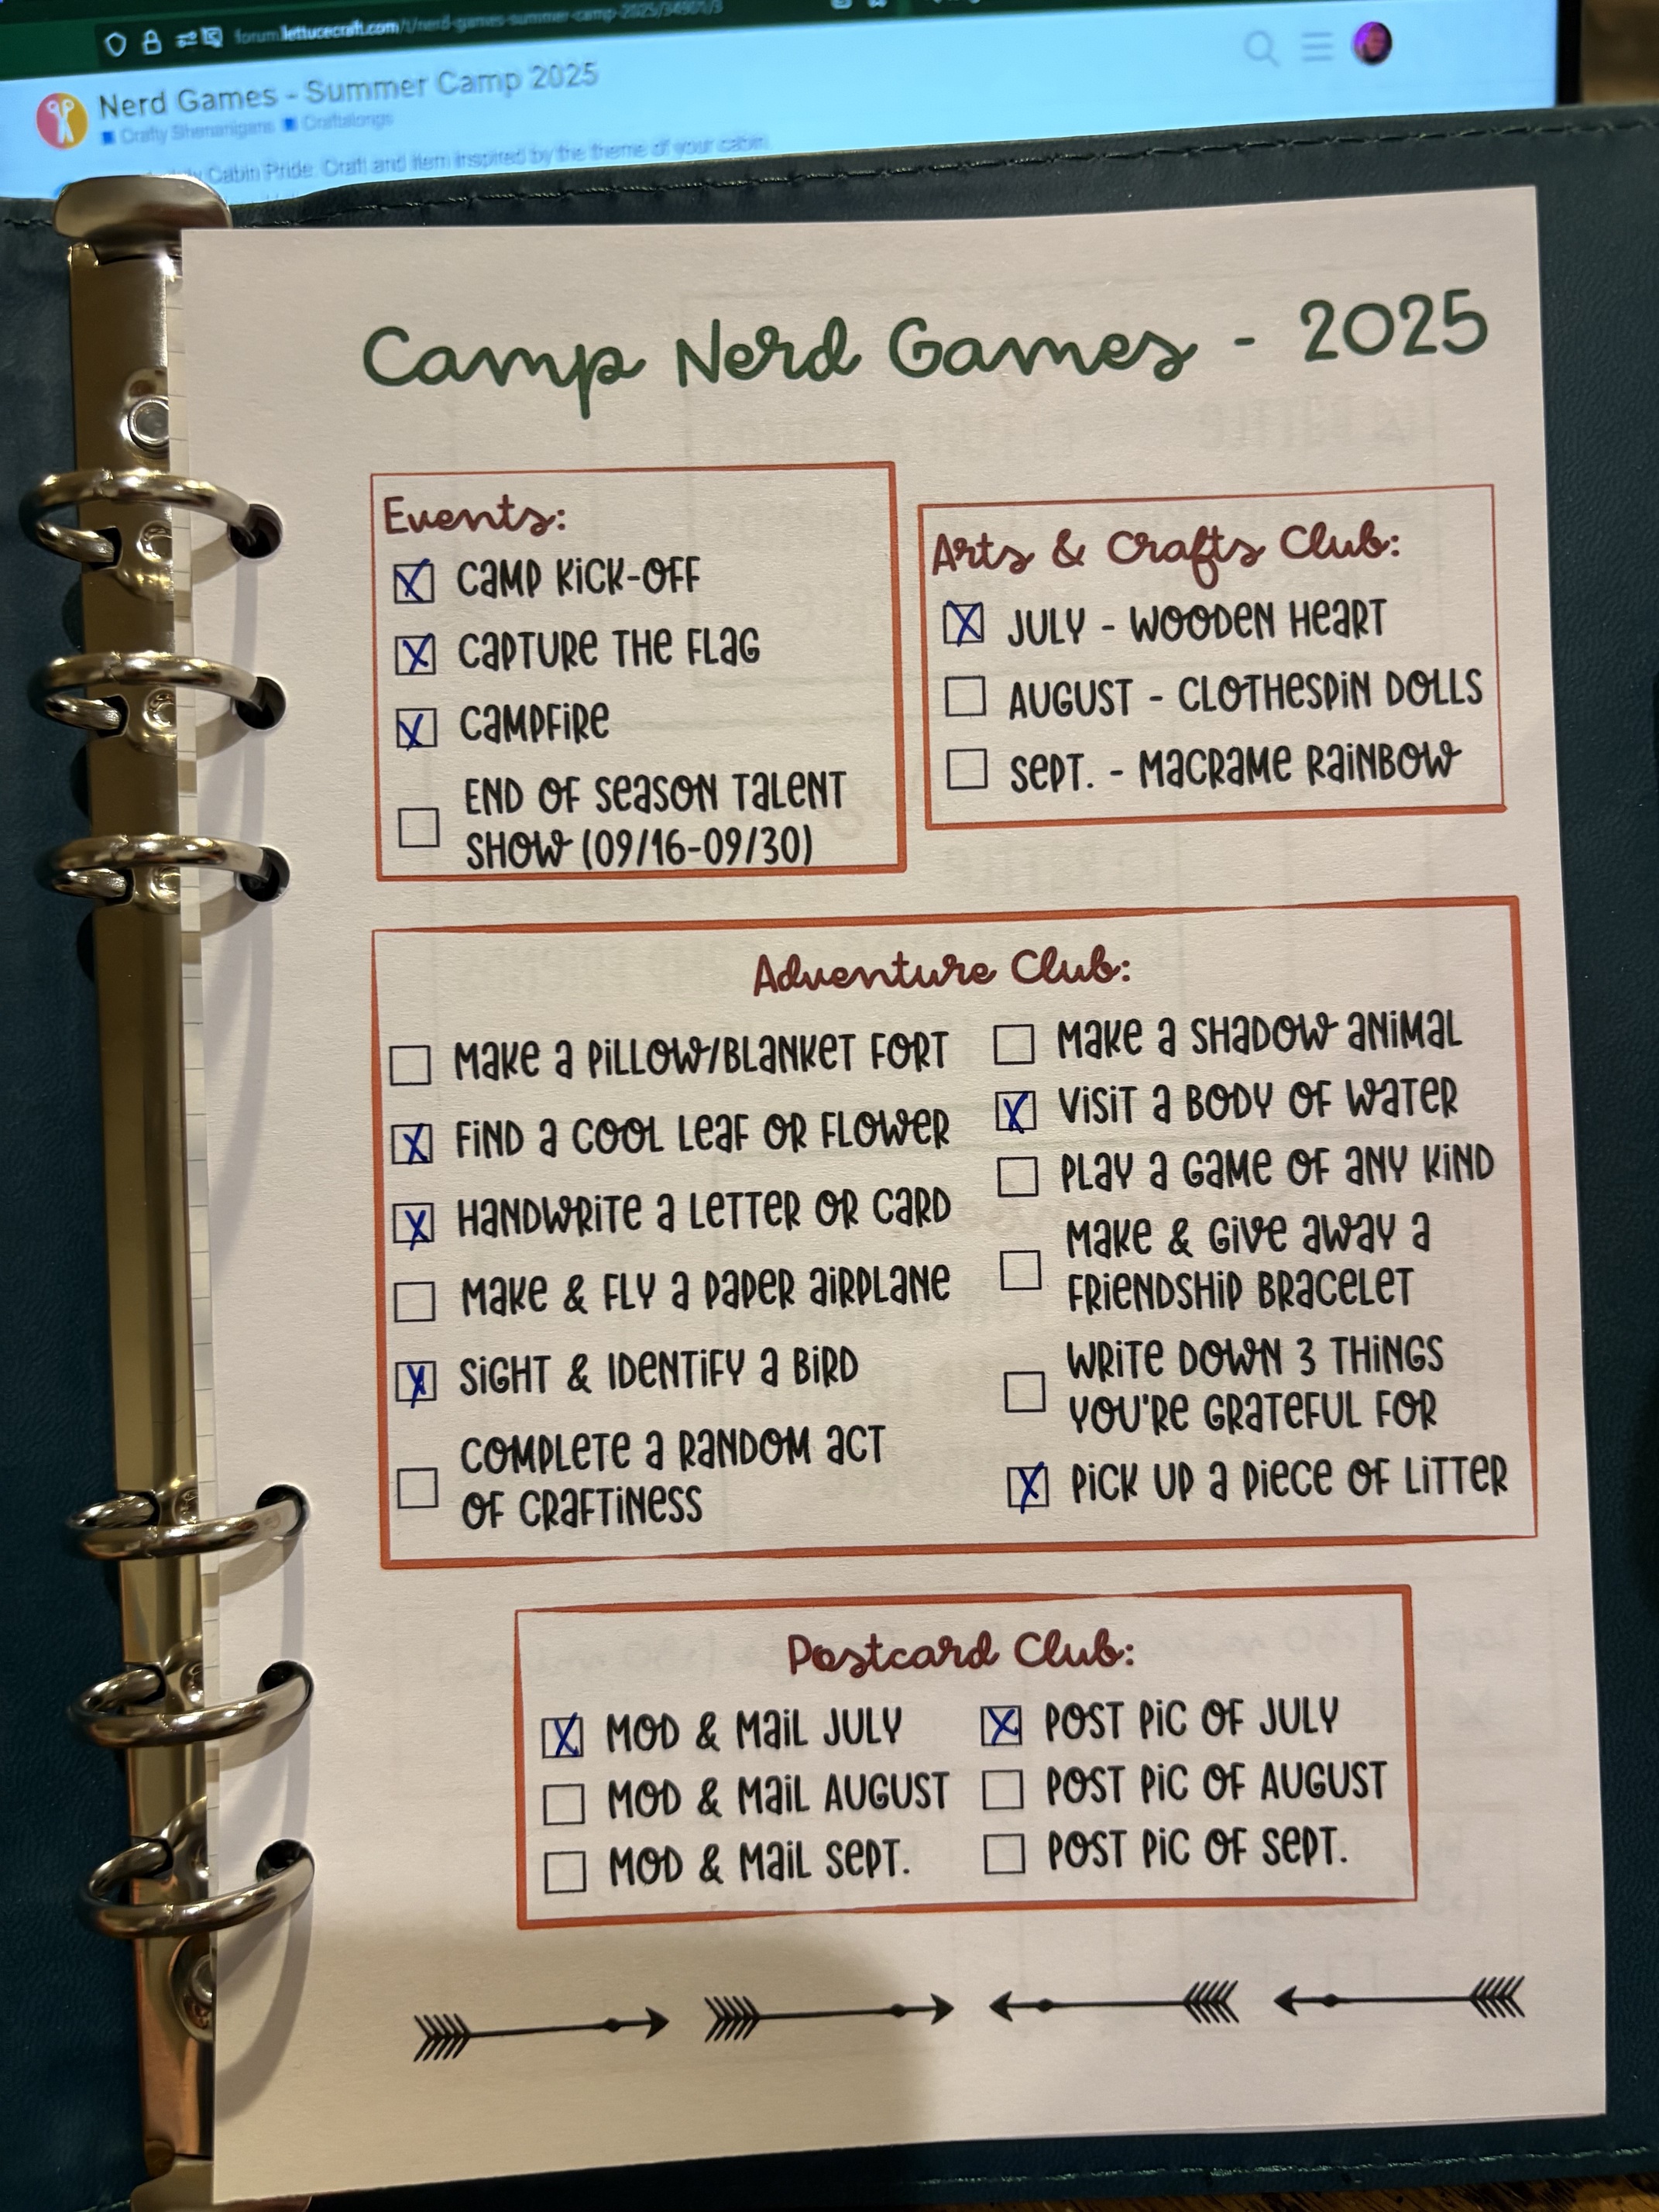 forum.lettucecraft.com/t/nerd-games-summer-camp-2025/34901/3
Nerd Games - Summer Camp 2025
Crafty Shenanigans Craftalongs
Cabin Pride: Craft and item inspired by the theme of your cabin.
Camp Nerd Games - 2025
Events:
CAMP KICK-OFF
CAPTURE THE FLAG
CAMPFIRE
END OF SEASON TALENT
SHOW (09/16-09/30)
Arts & Crafts Club:
JULY - WOODEN HEART
AUGUST - CLOTHESPIN DOLLS
SEPT. - MACRAME RAINBOW
Adventure Club:
MAKE A PILLOW/BLANKET FORT
FIND A COOL LEAF OR FLOWER
HANDWRITE A LETTER OR CARD
MAKE & FLY A PAPER AIRPLANE
SIGHT & IDENTIFY A BIRD
COMPLETE A RANDOM ACT
OF CRAFTINESS
MAKE A SHADOW ANIMAL
VISIT A BODY OF WATER
PLAY A GAME OF ANY KIND
MAKE & GIVE AWAY A
FRIENDSHIP BRACELET
WRITE DOWN 3 THINGS
YOU'RE GRATEFUL FOR
PICK UP A PIECE OF LITTER
Postcard Club:
MOD & MAIL JULY
MOD & MAIL AUGUST
MOD & MAIL SEPT.
POST PIC OF JULY
POST PIC OF AUGUST
POST PIC OF SEPT.